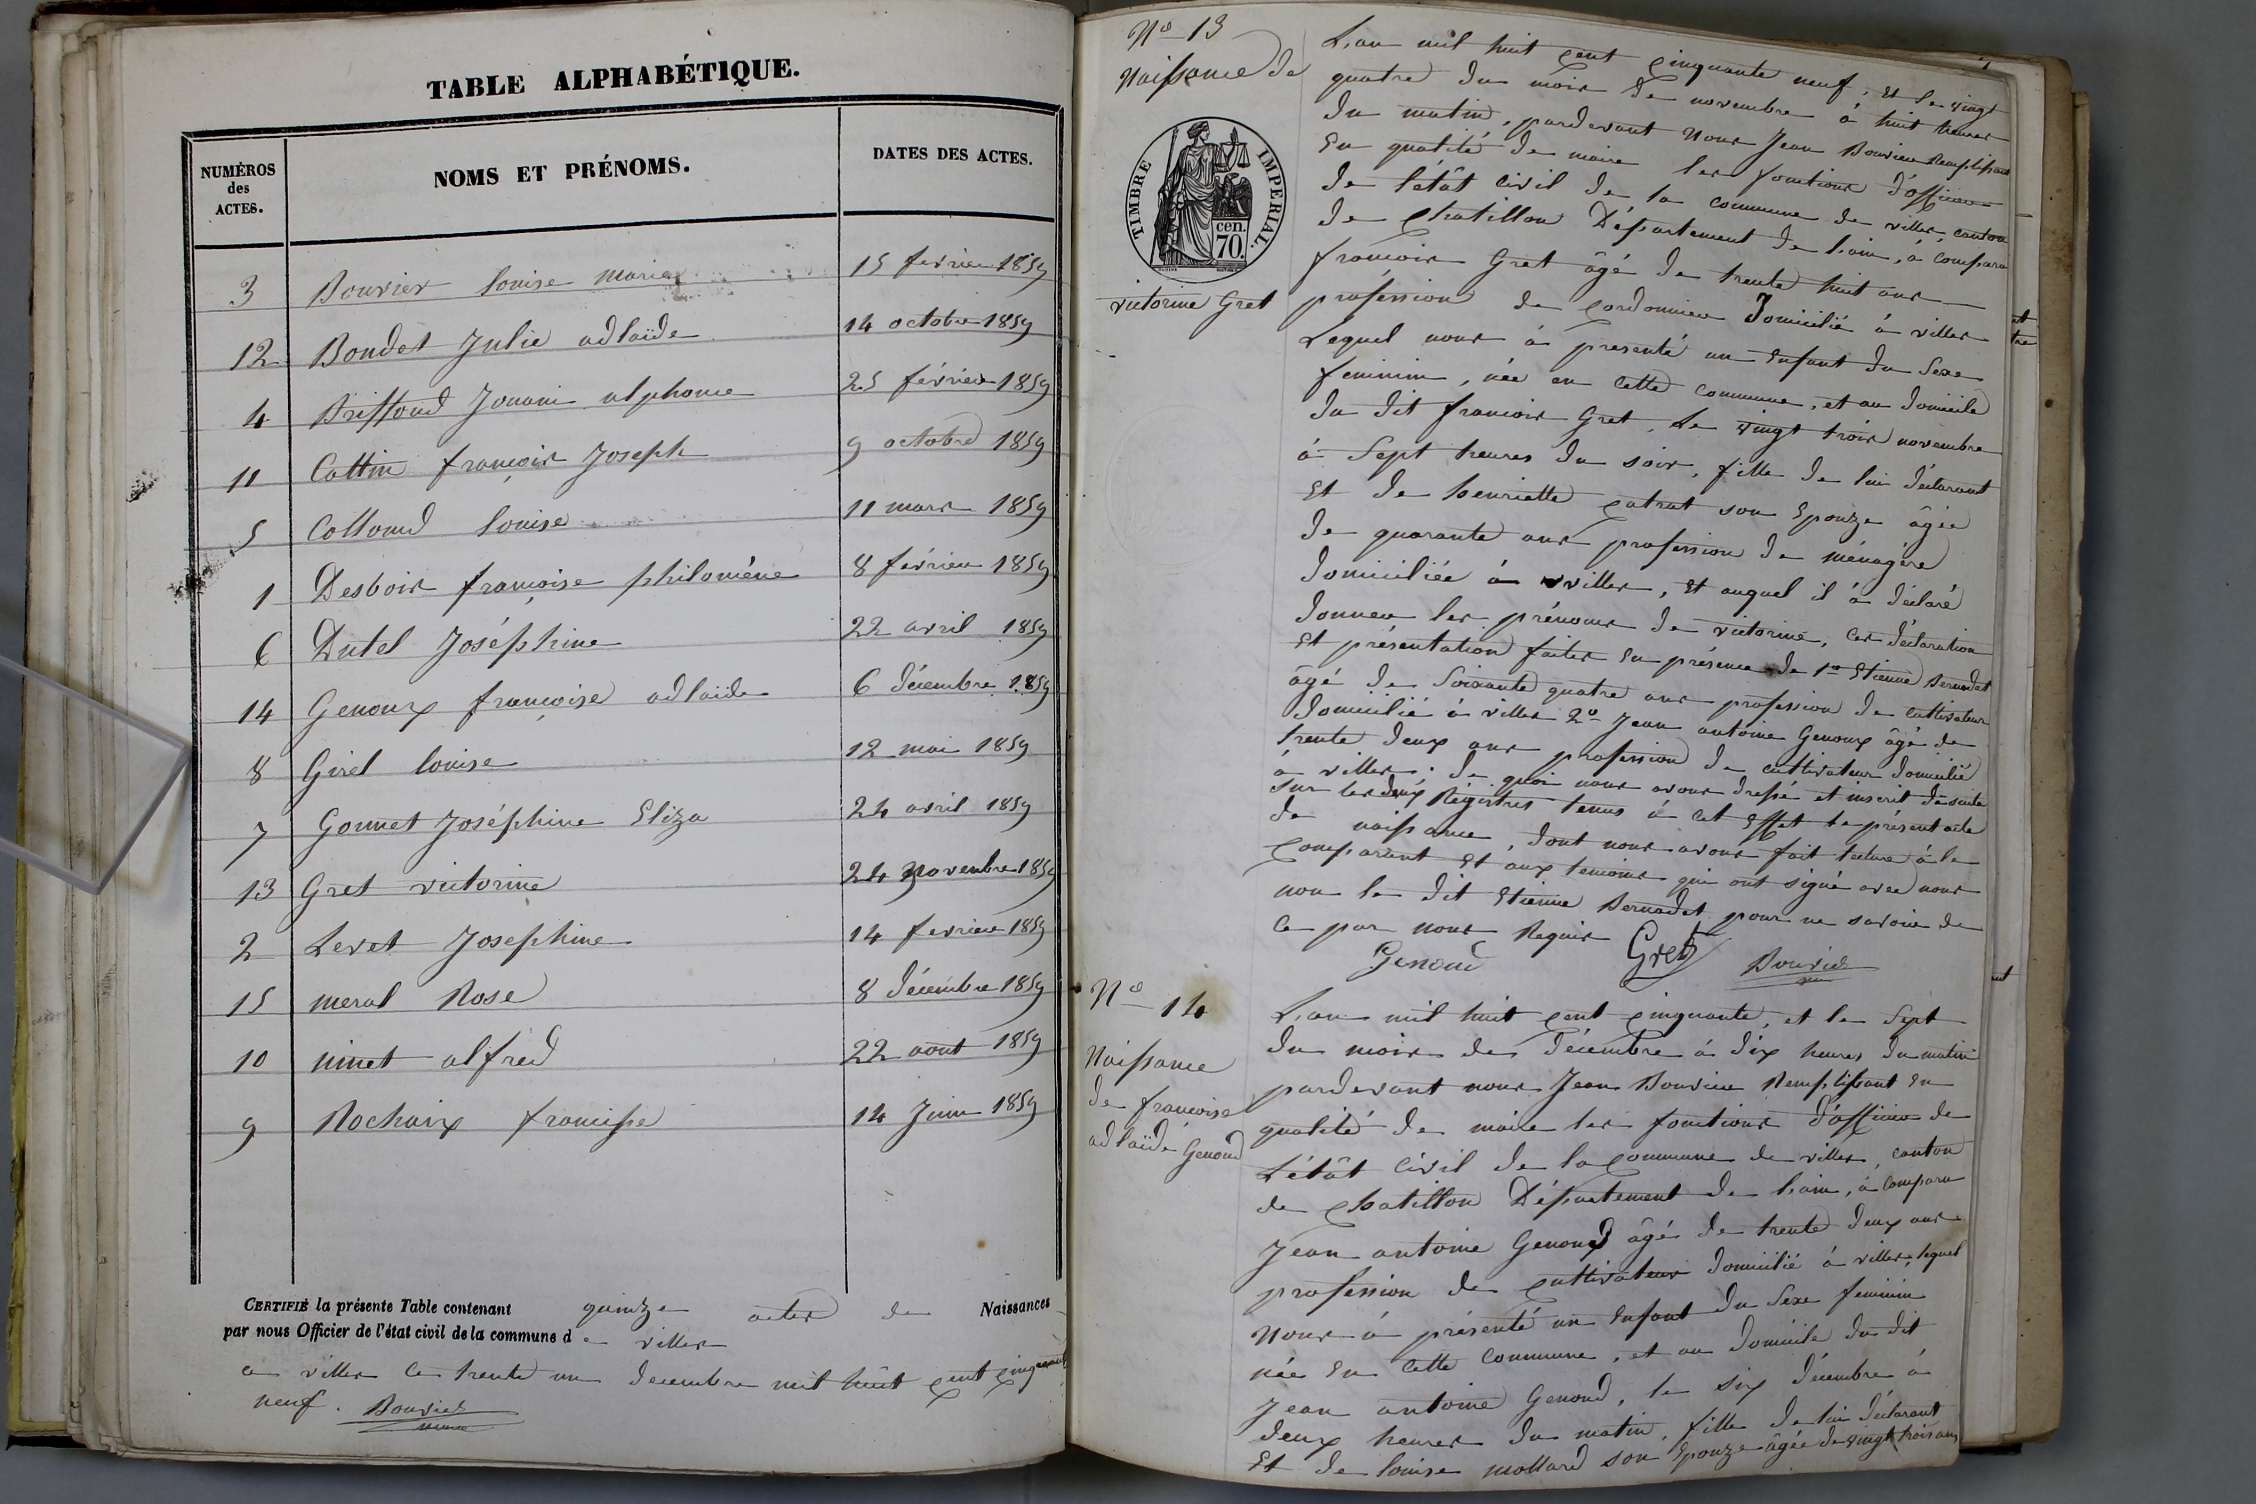 TABLE ALPHABÉTIQUE.
NUMÉROS des ACTES.
NOMS ET PRÉNOMS.
DATES DES ACTES.
3 Bouvier louise marie 15 fevrier 1859
12 Bondet Julie adlaïde 14 octobre 1859
4 Briffoud Jouani alphonse 25 février 1859
11 Cottin françois Joseph 9 octobre 1859
5 Colloud louise 11 mars 1859
1 Desbois françoise philomène 8 février 1859
6 Dutel Joséphine 22 avril 1859
14 Genoux françoise adlaïde 6 décembre 1859
8 Girel louise 12 mai 1859
7 Gonnet Joséphine Eliza 24 avril 1859
13 Gret victorine 24 novembre 1859
2 Levet Josephine 14 fevrier 1859
15 meral Rose 8 décembre 1859
10 ninet alfred 22 aout 1859
9 Rochaix francisse 14 Juin 1859
CERTIFIÉ la présente Table contenant quinze actes de Naissances
par nous Officier de l'état civil de la commune de villes
a villes ce trente un decembre mil huit cent cinquante
neuf. Bouvier
maire
No 13
Naissance de
TIMBRE IMPERIAL.
cen.
70.
victorine Gret
L'an mil huit cent cinquante neuf, et le vingt
quatre du mois de novembre à huit heures
du matin, pardevant Nous Jean Bouvier Remplissant
En qualité de maire les fonctions d'officier
de l'étât civil de la commune de villes canton
de chatillon Département de l'ain, à comparu
francois Gret âgé de trente huit ans
profession de cordonnier Domicilié à villes
Lequel nous à presenté un Enfant du Sexe
feminin, née en cette commune, et au domicile
du dit francois Gret, Le vingt trois novembre
à Sept heures du soir, fille de lui déclarant
Et de henriette catrat son Epouze âgée
de quarante ans profession de ménagère
domiciliée à villes, Et auquel il à déclaré
donner les prénoms de victorine, ces déclaration
Et présentation faites En présence de 1o Etienne Bernadet
âgé de Soixante quatre ans profession de cultivateur
domicilié à villes 2o Jean antoine Genoux âgé de
trente deux ans profession de cultivateur domicilié
à villes. de quoi nous avons dressé et inscrit de suite
sur les deux Régistres tenus à cet Effet le présent acte
de naissance, dont nous avons fait lecture à la
comparant Et aux temoins qui ont signé avec nous
non le dit Etienne Bernadet pour ne savoir de
ce par nous Requis
Genoud Gret Bouvier
No 14
Naissance
de francoise
adlaïde Genoud
L'an mil huit cent cinquante, et le Sept
du mois de Décembre à dix heures du matin
pardevant nous Jean Bouvier Remplissant En
qualité de maire les fonctions d'officier de
L'étât Civil de la commune de villes, canton
de chatillon Département de l'ain, à comparu
Jean antoine Genoud âgé de trente deux ans
profession de cultivateur domicilié à villes, lequel
Nous à présenté un Enfant du Sexe feminin
née En cette commune, et au domicile du dit
Jean antoine Genoud, le six décembre à
deux heures du matin, fille de lui déclarant
Et de louise mollard son Epouze âgée de vingt trois ans